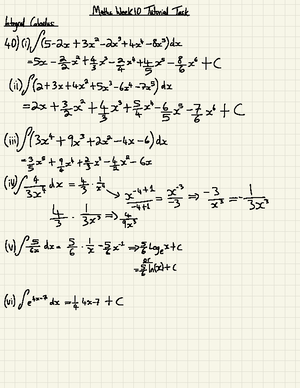 Maths Week 10 Tutorial Task
Integral Calculus
40) (i) ∫(5-2x+3x²-2x³+4x⁴-8x⁵)dx
=5x-2/2x²+3/3x³-2/4x⁴+4/5x⁵-8/6x⁶+C
(ii) ∫(2+3x+4x²+5x³-6x⁴-7x⁵)dx
=2x+3/2x²+4/3x³+5/4x⁴-6/5x⁵-7/6x⁶+C
(iii) ∫(3x⁴+9x³+2x²-4x-6)dx
=3/5x⁵+9/4x⁴+2/3x³-4/2x²-6x
(iv) ∫4/3x⁴ dx = 4/3 · 1/x⁴ → x⁻⁴⁺¹/-4+1 = x⁻³/-3 ⇒ -3/x³ = -1/3x³
4/3 · 1/3x³ ⇒ 4/9x³
(v) ∫5/6x dx = 5/6 · 1/x = 5/6x⁻¹ ⇒ 5/6 logₑx+C
or
= 5/6 ln(x)+C
(vi) ∫e⁴ˣ⁻⁷ dx = 1/4 4x-7 + C